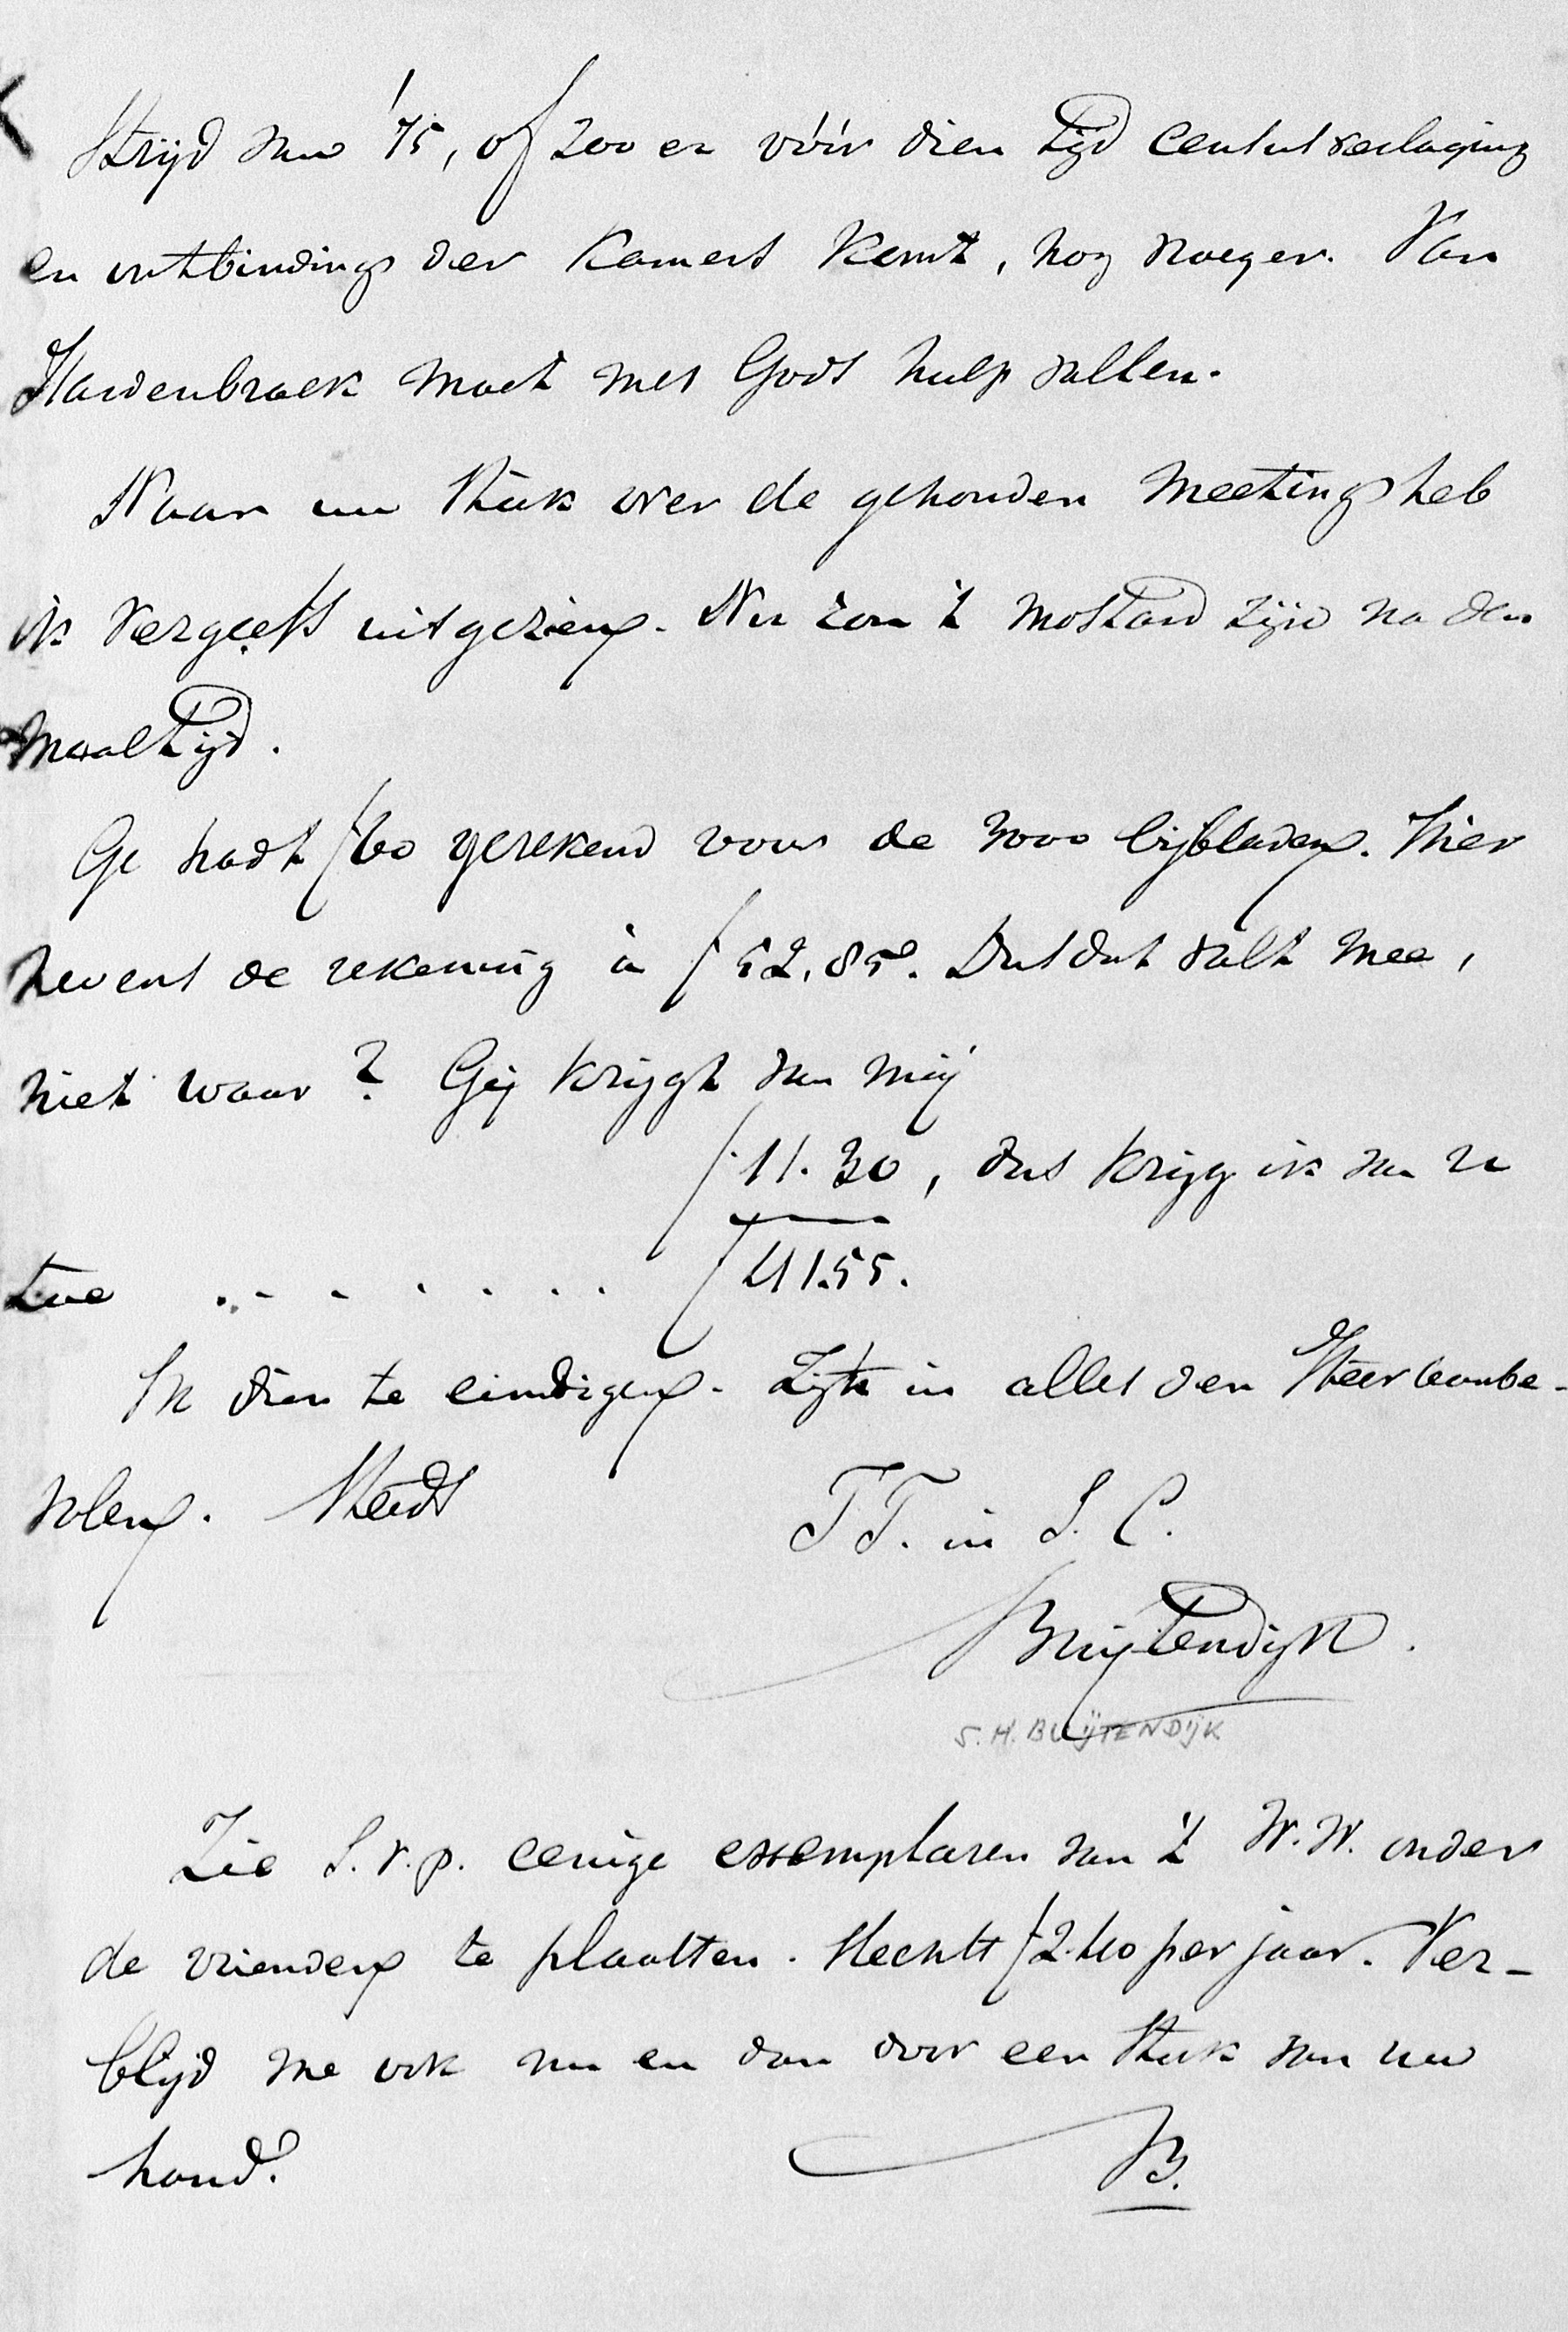 strijd van '75, of zoo er vóór dien tijd censusverlaging
en ontbinding der Kamers komt, nog vroeger. Van
Hardenbroek moet met Gods hulp vallen.
Naar uw stuk over de gehouden meeting heb
ik vergeefs uitgezien. Nu zou 't mostard zijn na den
maaltijd.
Ge hadt f60 gerekend voor de 3000 bijbladen. Hier
nevens de rekening à f 52,85. Dus dat valt mee,
niet waar? Gij krijgt van mij
f 11.30, dus krijg ik van u
toe . . . . . . . f 41.55.
Ik dien te eindigen. Zijt in alles den Heer aanbe-
volen. Steeds T.T. in J. C.
Buijtendijk.
S. H. BUIJTENDIJK
Zie s.v.p. eenige exemplaren van 't W.W. onder
de vrienden te plaatsen. Slechts f 2.40 per jaar. Ver-
blijd me ook nu en dan door een stuk van uw
hand.
B.